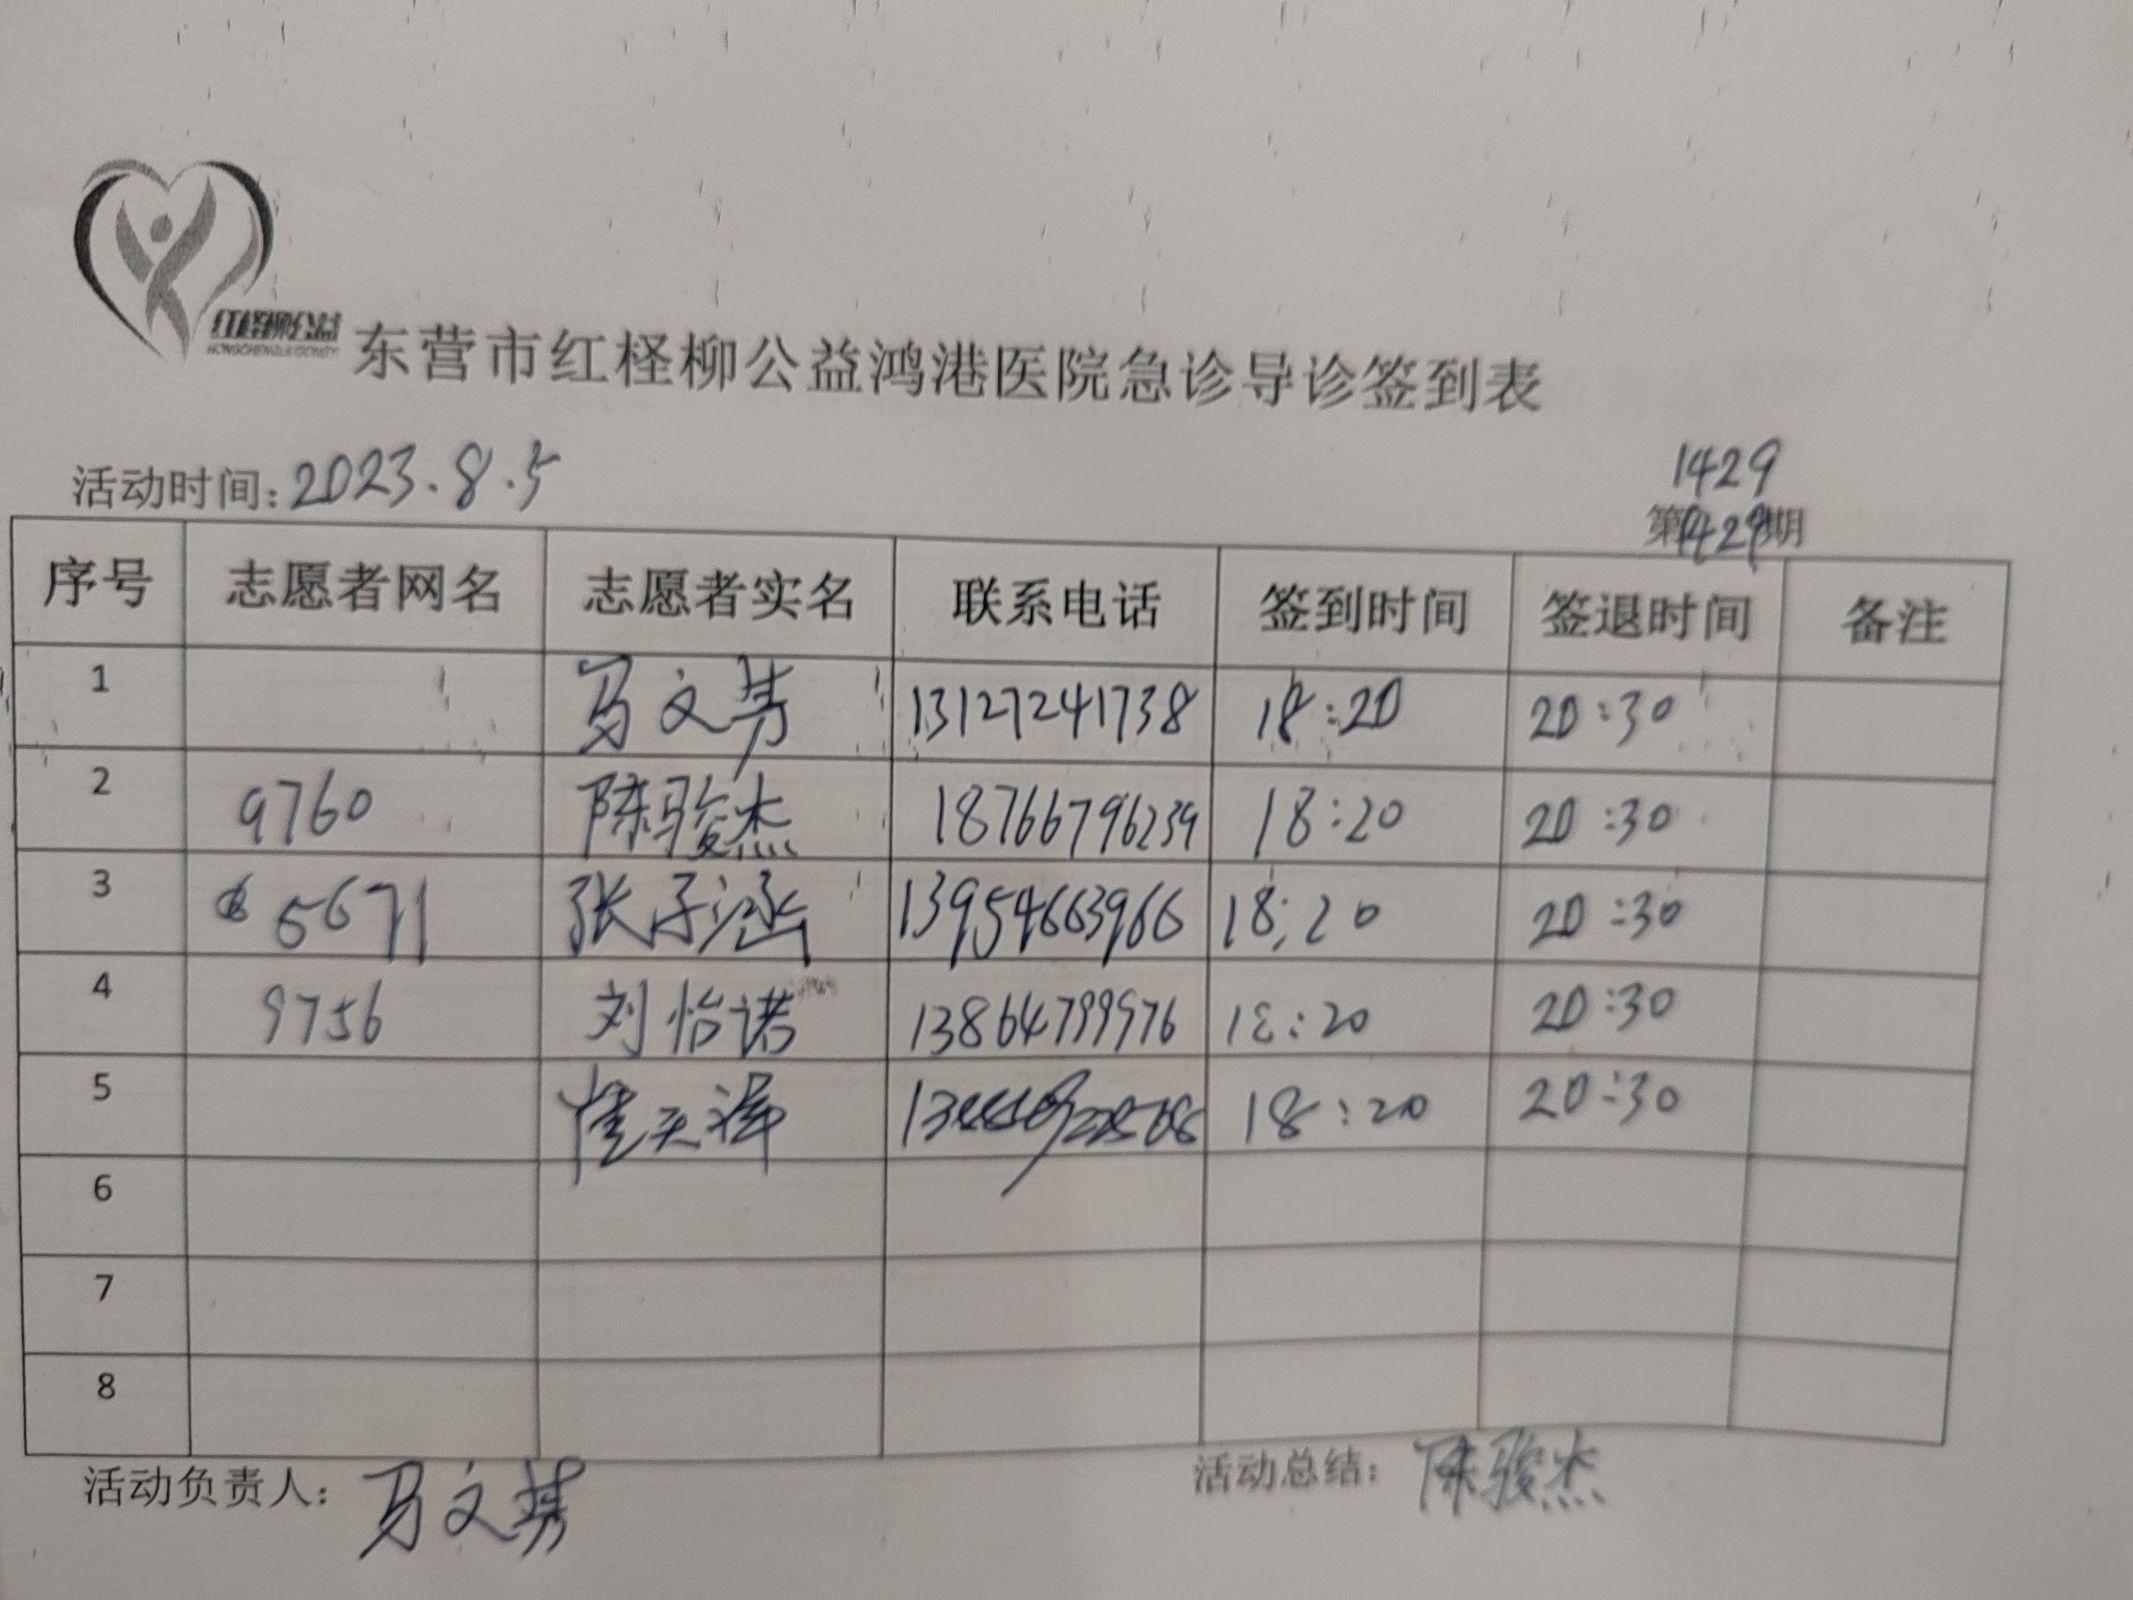 红柽柳公益
东营市红柽柳公益鸿港医院急诊导诊签到表
活动时间:2023.8.5
1429
第1429期
序号 志愿者网名 志愿者实名 联系电话 签到时间 签退时间 备注
1 马文 13127241738 18:20 20:30
2 9760 陈骏杰 18766796239 18:20 20:30
3 5671 张子涵 13954663966 18:20 20:30
4 9756 刘怡诺 13864799976 18:20 20:30
5 天泽 18:20 20:30
6
7
8
活动负责人: 马文
活动总结: 陈骏杰